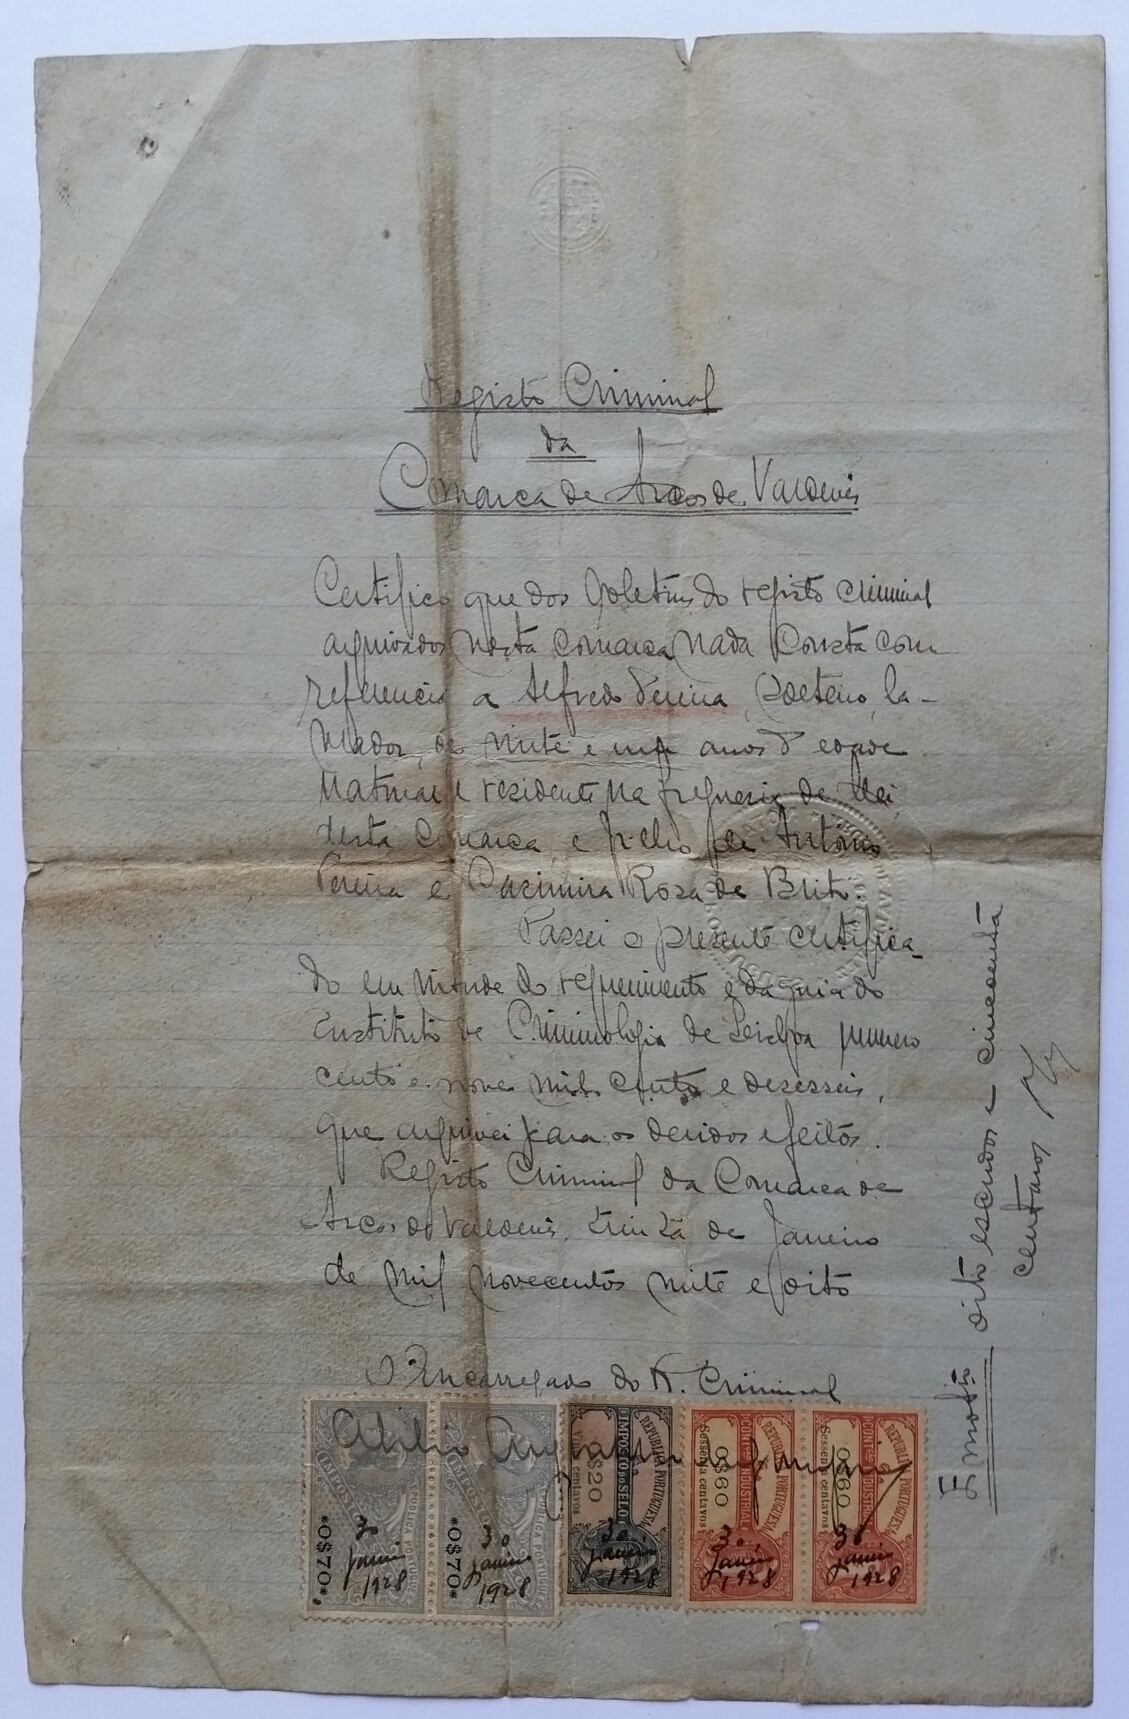 Registo Criminal
da
Comarca de Arcos de Valdevês
Certifico que dos boletins do registo criminal
arquivados nesta comarca nada consta com
referencia a Alfredo Pereira, solteiro, la-
vrador, de vinte e um anos d'edade
natural e residente na freguesia de Mei
desta comarca e filho de António
Pereira e Cazimira Rosa de Brito.
Passei o presente certifica-
do em virtude do requerimento e da guia do
Instituto de Criminologia de Lisboa numero
cento e nove mil cento e dezesseis,
que arquivei para os devidos efeitos.
Registo Criminal da Comarca de
Arcos de Valdevês, trinta de Janeiro
de mil novecentos vinte e oito
O Encarregado do R. Criminal
Abilio
REPUBLICA PORTUGUESA
IMPOSTO
*0$70*
30
Janeiro
1928
REPUBLICA PORTUGUESA
IMPOSTO
*0$70*
30
Janeiro
1928
REPUBLICA PORTUGUESA
IMPOSTO DO SELO
0$20
Vinte centavos
30
Janeiro
1928
REPUBLICA PORTUGUESA
CONT.ÃO INDUSTRIAL
0$60
Sessenta centavos
30
Janeiro
1928
REPUBLICA PORTUGUESA
CONT.ÃO INDUSTRIAL
0$60
Sessenta centavos
30
Janeiro
1928
oito escudos e cincoenta
centavos